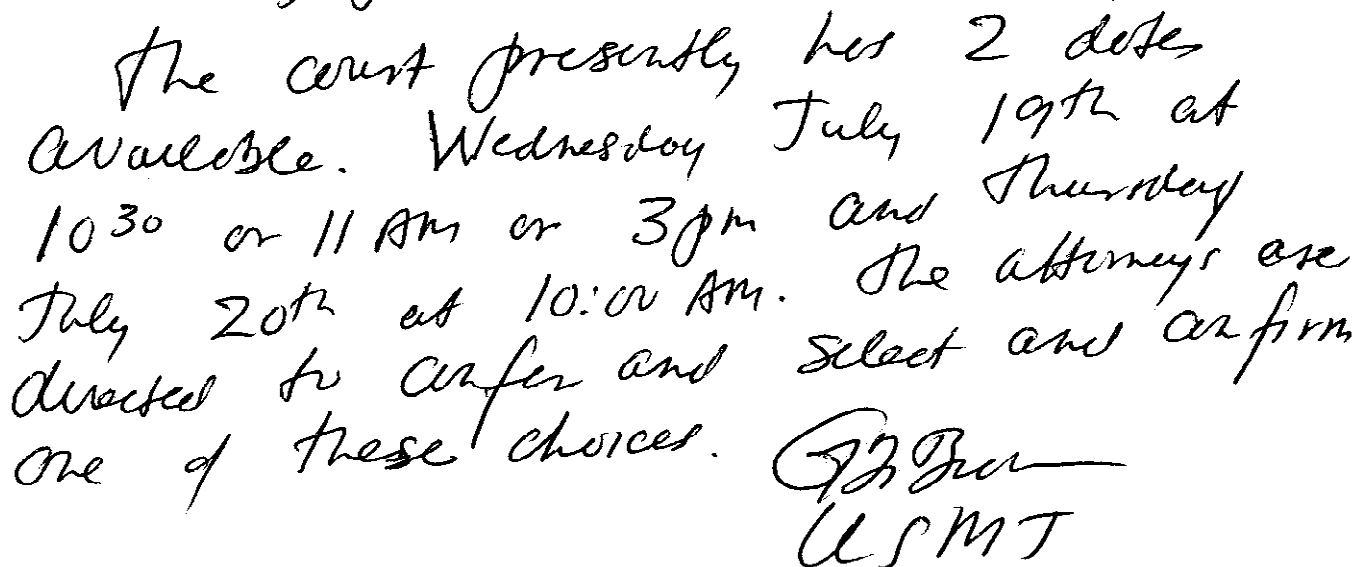 The court presently has 2 dates
available. Wednesday July 19th at
10 30 or 11 AM or 3 pm and Thursday
July 20th at 10:00 AM. The attorneys are
directed to confer and select and confirm
one of these choices.
USMJ